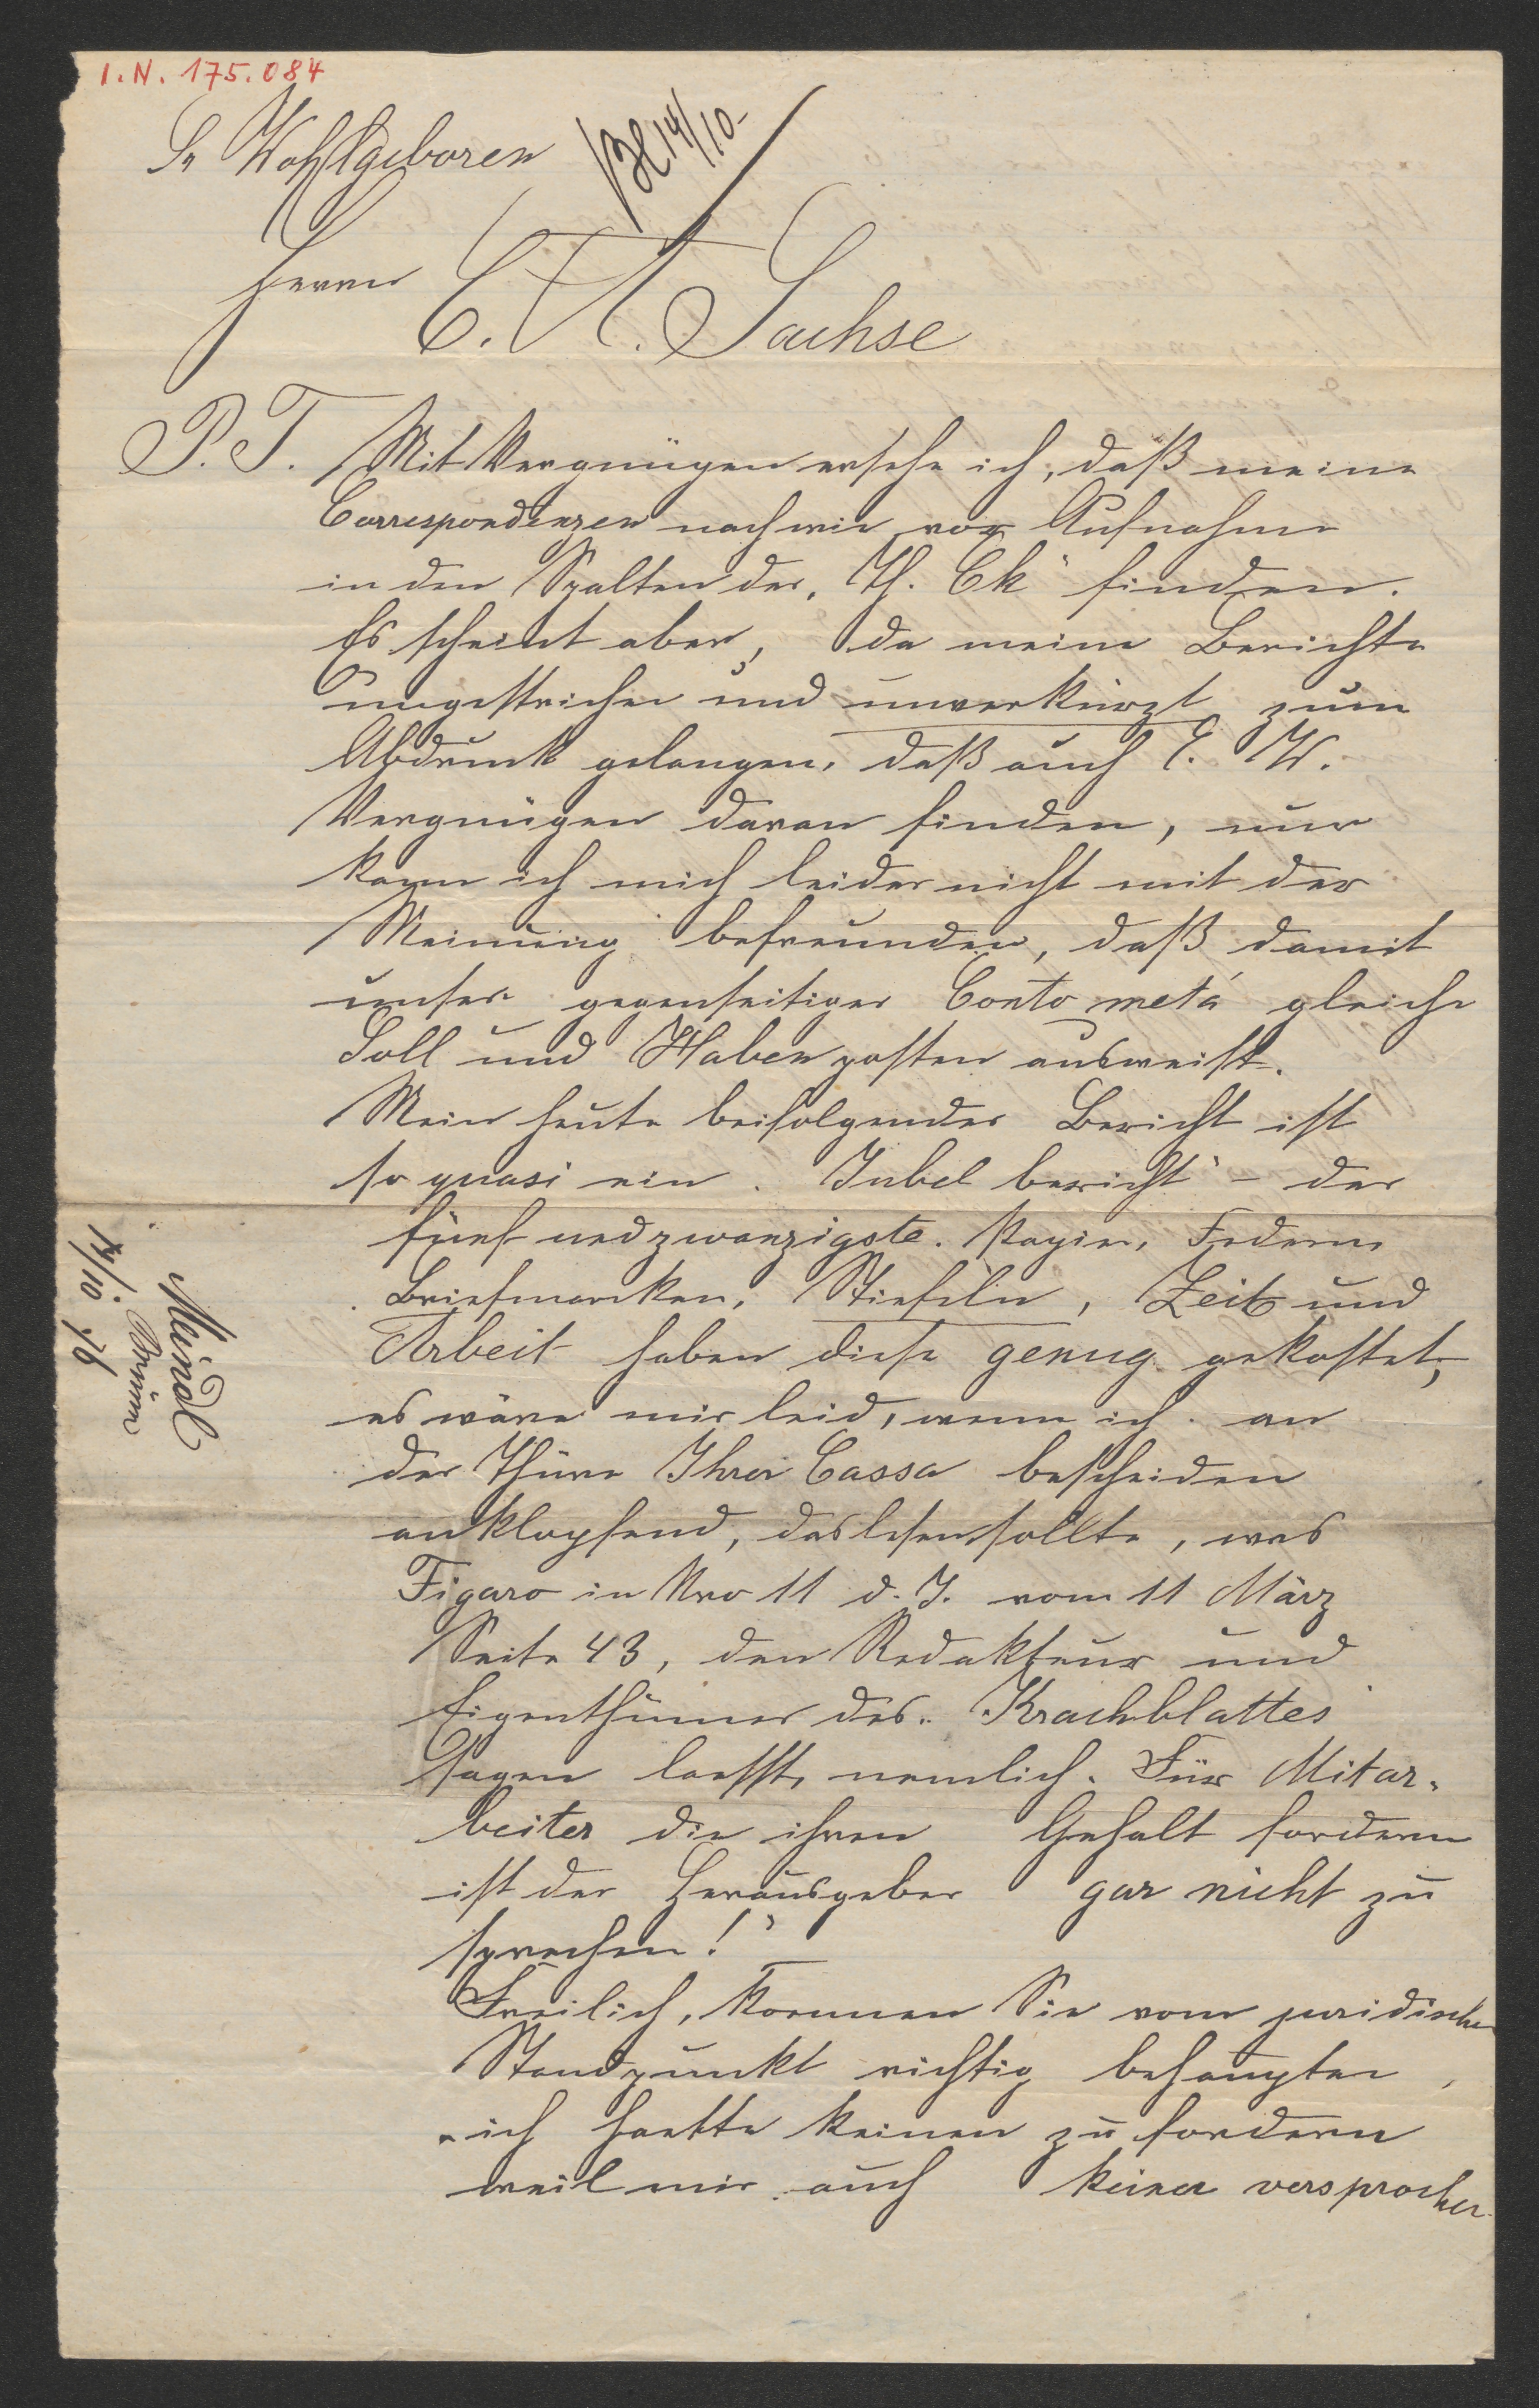 I. N. 175.084
Sr Wohlgeboren
14/10
Herrn
C. A. Sachse
P. T. Mit Vergnügen ersehe ich, daß meine
Correspondenzen nach wie vor Aufnahme
in den Spalten der „Th. Ch“ finden.
Es scheint aber, da meine Berichte
ungestrichen und unverkürzt zum
Abdruck gelangen, daß auch E. W.
Vergnügen daran finden, nur
kann ich mich leider nicht mit der
Meinung befreunden, daß damit
unser gegenseitiger Conto metá gleiche
Soll und Haben posten ausweist.
Mein heute beifolgender Bericht ist
so quasi ein „Jubel bericht“ – der
fünf und zwanzigste. Papier, Federn
Briefmarken, Stiefeln, Zeit und
Arbeit haben diese genug gekostet,
es wäre mir leid, wenn ich an
der Thüre Ihrer Cassa bescheiden
anklopfend, das lesen sollte, was
Figaro in Nro 11 d. J. vom 11 März
Seite 43, den Redakteur und
Eigenthümer des „Krachblattes“
sagen laesst, nemlich „Für Mitar-
beiter die ihren Gehalt fordern
ist der Herausgeber gar nicht zu
sprechen!“
Freilich, koennen Sie vom juridischen
Standpunkt richtig behaupten,
ich haette keinen zu fordern
weil mir auch keiner versprochen
Meindl
Brünn
14/10 76